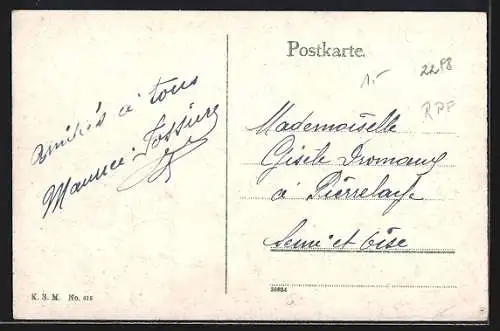 Postkarte.
1.-
2298
RPF
amitiés à tous
Maurice
Mademoiselle
Gisèle Dromaux
à Pierrelaye
Seine et Oise
K. S. M. No. 615